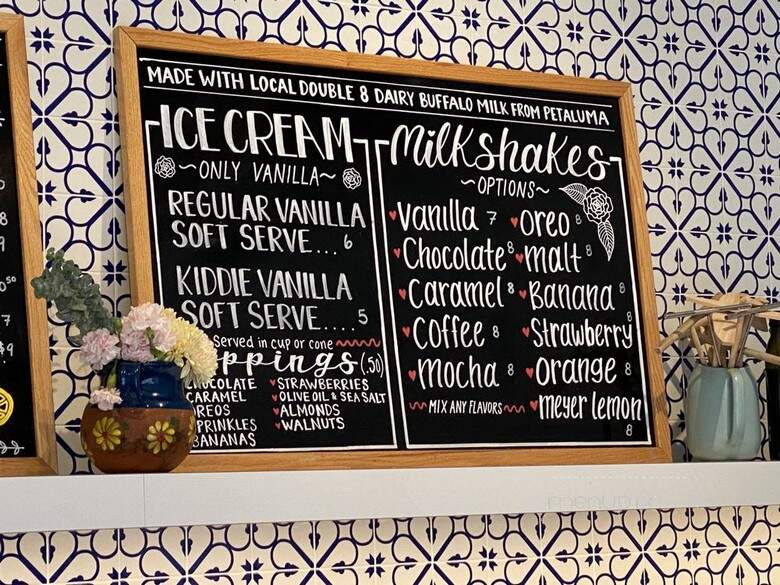 MADE WITH LOCAL DOUBLE 8 DAIRY BUFFALO MILK FROM PETALUMA
ICE CREAM
~ONLY VANILLA~
REGULAR VANILLA
SOFT SERVE... 6
KIDDIE VANILLA
SOFT SERVE.... 5
served in cup or cone
ppings (.50)
CHOCOLATE
CARAMEL
OREOS
SPRINKLES
BANANAS
STRAWBERRIES
OLIVE OIL & SEA SALT
ALMONDS
WALNUTS
Milkshakes
~OPTIONS~
vanilla 7
Chocolate 8
Caramel 8
Coffee 8
mocha 8
MIX ANY FLAVORS
oreo 8
malt 8
Banana 8
Strawberry 8
orange 8
meyer lemon 8